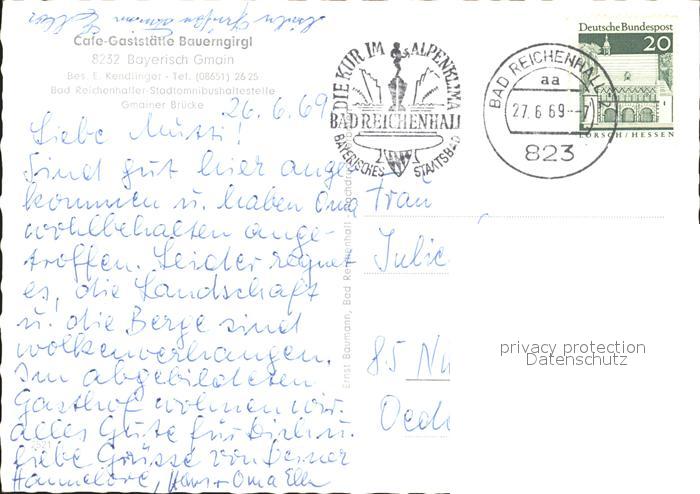 Cafe-Gaststätte Bauerngirgl
8232 Bayerisch Gmain
Bes. E. Kendlinger - Tel. (08651) 26 25
Bad Reichenhaller-Stadtomnibushaltestelle
Gmainer Brücke
26.6.69
Liebe Mutti!
Sind gut hier ange-
kommen u. haben Oma
wohlbehalten ange-
troffen. Leider regnet
es, die Landschaft
u. die Berge sind
wolkenverhangen.
Im abgebildeten
Gasthof wohnen wir.
Alles Gute für Dich u.
liebe Grüsse von Deiner
Hannelore, Hans + Oma Ella
Ernst Baumann, Bad Reichenhall
DIE KUR IM ALPENKLIMA
BAD REICHENHALL
BAYERISCHES STAATSBAD
BAD REICHENHALL
aa
27.6.69
823
Deutsche Bundespost
20
LORSCH/HESSEN
Frau
Julie
85 Nü
privacy protection
Datenschutz